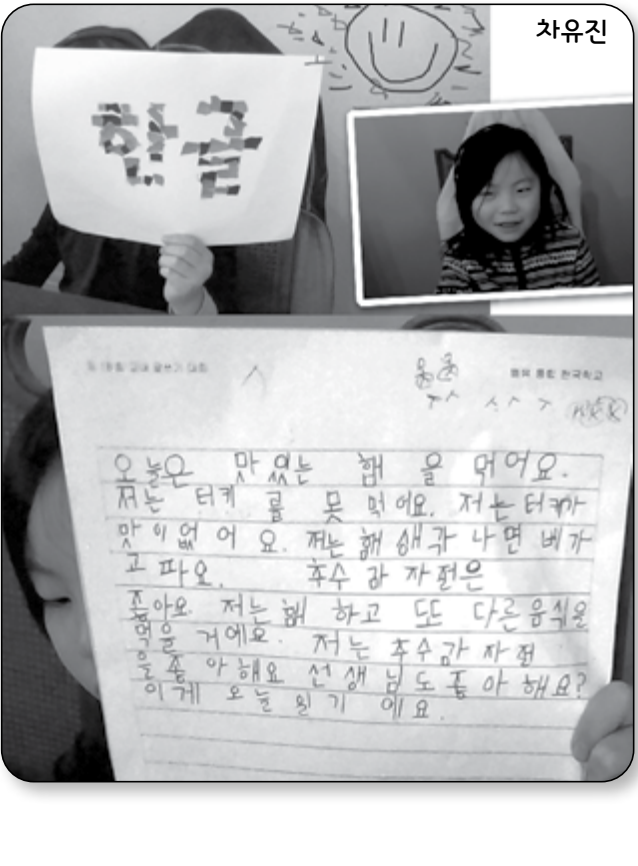 차유진
한국
글쓰기 대회
통합 한국학교
오늘은 맛있는 햄 을 먹어요.
저는 터키 를 못 먹어요. 저는 터키가
맛이없어요. 저는 햄 생각 나면 베가
고파요. 추수 감 자절은
좋아요. 저는 햄 하고 또또 다른 음식을
먹을 거에요. 저는 추수감 자절
을 좋아해요 선생님도 좋아해요?
이게 오늘 일기 에요.